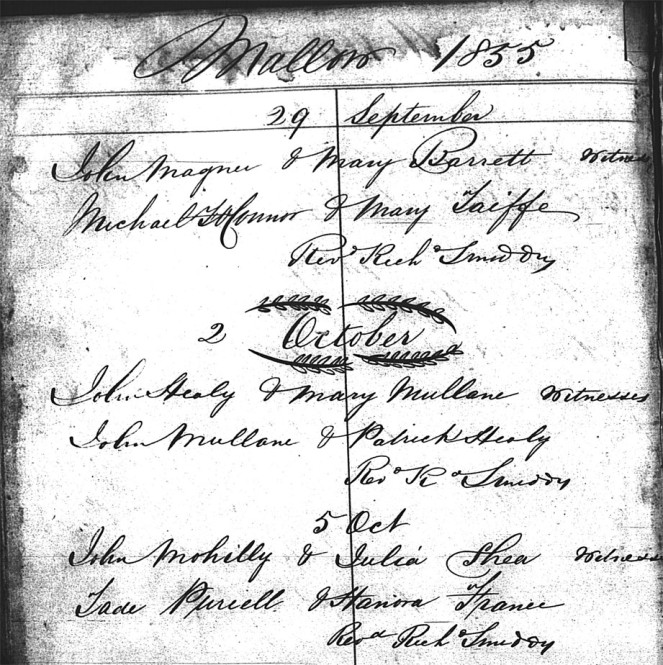 Mallow 1855
29 September
John Magner & Mary Barrett Witness
Michael O'Connor & Mary Taiffe
Revd Richd Smiddy
2 October
John Healy & Mary Mullane Witnesses
John Mullane & Patrick Healy
Revd Rd Smiddy
5 Oct
John Mohilly & Julia Shea Witnesses
Tade Purcell & Hanora France
Revd Richd Smiddy